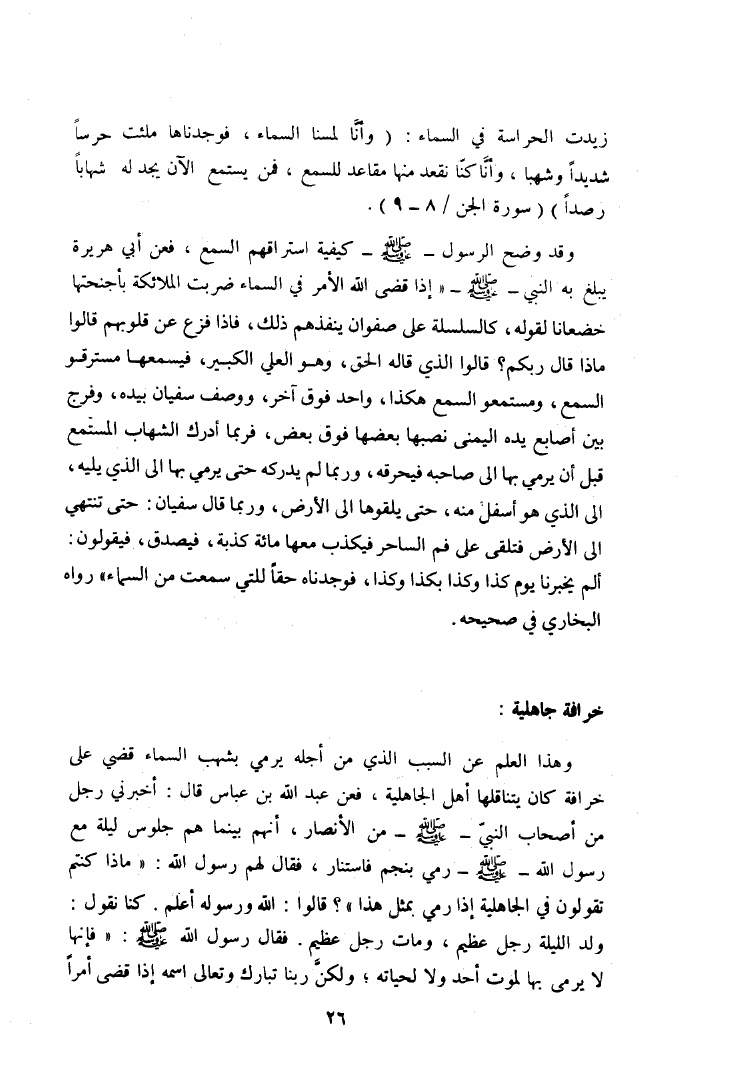 زيدت الحراسة في السماء : ( وأنَّا لمسنا السماء ، فوجدناها ملئت حرساً
شديداً وشهبا ، وأنَّا كنّا نقعد منها مقاعد للسمع ، فمن يستمع الآن يجد له شهاباً
رصداً ) ( سورة الجن / ٨ – ٩ ) .
وقد وضح الرسول – ﷺ – كيفية استراقهم السمع ، فعن أبي هريرة
يبلغ به النبي – ﷺ – « إذا قضى الله الأمر في السماء ضربت الملائكة بأجنحتها
خضعانا لقوله، كالسلسلة على صفوان ينفذهم ذلك، فاذا فزع عن قلوبهم قالوا
ماذا قال ربكم؟ قالوا الذي قاله الحق، وهو العلي الكبير، فيسمعها مسترقو
السمع، ومستمعو السمع هكذا، واحد فوق آخر، ووصف سفيان بيده، وفرج
بين أصابع يده اليمنى نصبها بعضها فوق بعض، فربما أدرك الشهاب المستمع
قبل أن يرمي بها الى صاحبه فيحرقه، وربما لم يدركه حتى يرمي بها الى الذي يليه،
الى الذي هو أسفل منه، حتى يلقوها الى الأرض، وربما قال سفيان: حتى تنتهي
الى الأرض فتلقى على فم الساحر فيكذب معها مائة كذبة، فيصدق، فيقولون:
ألم يخبرنا يوم كذا وكذا بكذا وكذا، فوجدناه حقاً للتي سمعت من السماء» رواه
البخاري في صحيحه.
خرافة جاهلية :
وهذا العلم عن السبب الذي من أجله يرمي بشهب السماء قضي على
خرافة كان يتناقلها أهل الجاهلية ، فعن عبد الله بن عباس قال : أخبرني رجل
من أصحاب النبيّ – ﷺ – من الأنصار ، أنهم بينما هم جلوس ليلة مع
رسول الله – ﷺ – رمي بنجم فاستنار ، فقال لهم رسول الله : « ماذا كنتم
تقولون في الجاهلية إذا رمي بمثل هذا » ؟ قالوا : الله ورسوله أعلم . كنا نقول :
ولد الليلة رجل عظيم ، ومات رجل عظيم . فقال رسول الله ﷺ : « فإنها
لا يرمى بها لموت أحد ولا لحياته ؛ ولكنَّ ربنا تبارك وتعالى اسمه إذا قضى أمراً
٢٦